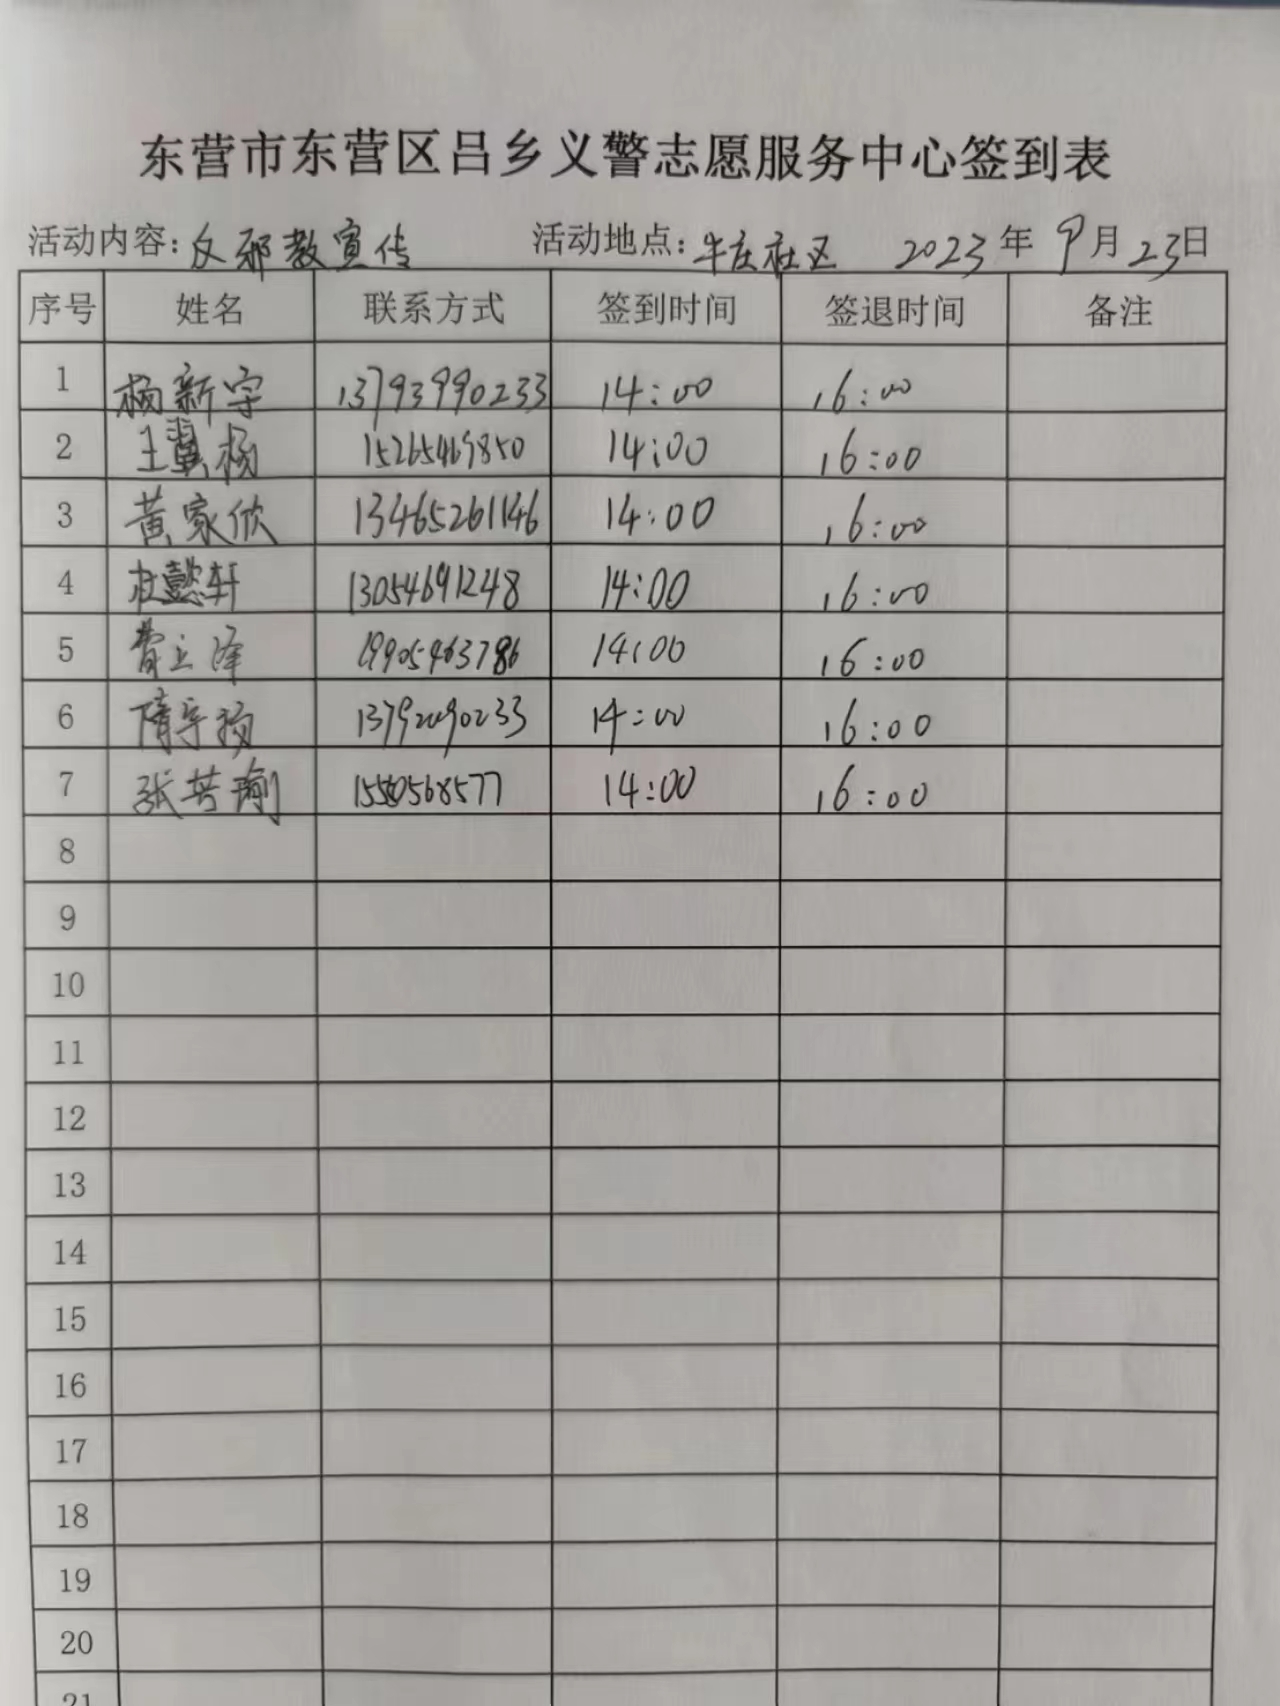 东营市东营区吕乡义警志愿服务中心签到表
活动内容：反邪教宣传 活动地点：牛庄社区 2023年9月23日
序号 姓名 联系方式 签到时间 签退时间 备注
1 杨新宇 13793990233 14:00 16:00
2 王冀杨 15265469850 14:00 16:00
3 黄家欣 13465261146 14:00 16:00
4 杜懿轩 13054691248 14:00 16:00
5 费立泽 19905463786 14:00 16:00
6 隋宇扬 13792090233 14:00 16:00
7 张芳瑜 14:00 16:00
8
9
10
11
12
13
14
15
16
17
18
19
20
21